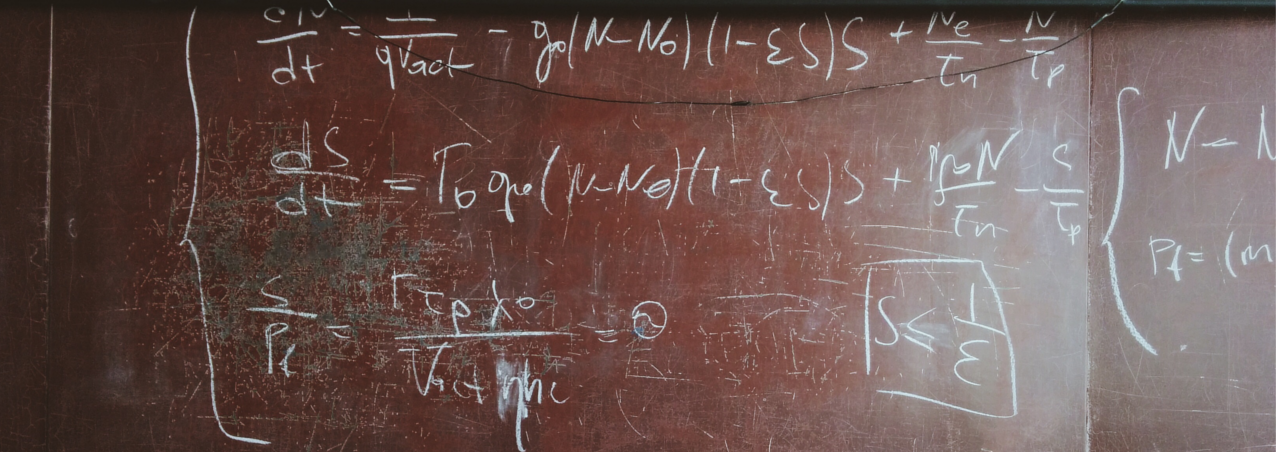 dN/dt = I/qVact - g₀(N-N₀)(1-εS)S + Ne/τn - N/τp
dS/dt = Γ₀g₀(N-N₀)(1-εS)S + Γβ₀N/τn - S/τp
S/Pf = Γτpλ₀/Vactηhc = ϑ
S ≤ 1/ε
N - N
Pf = (m